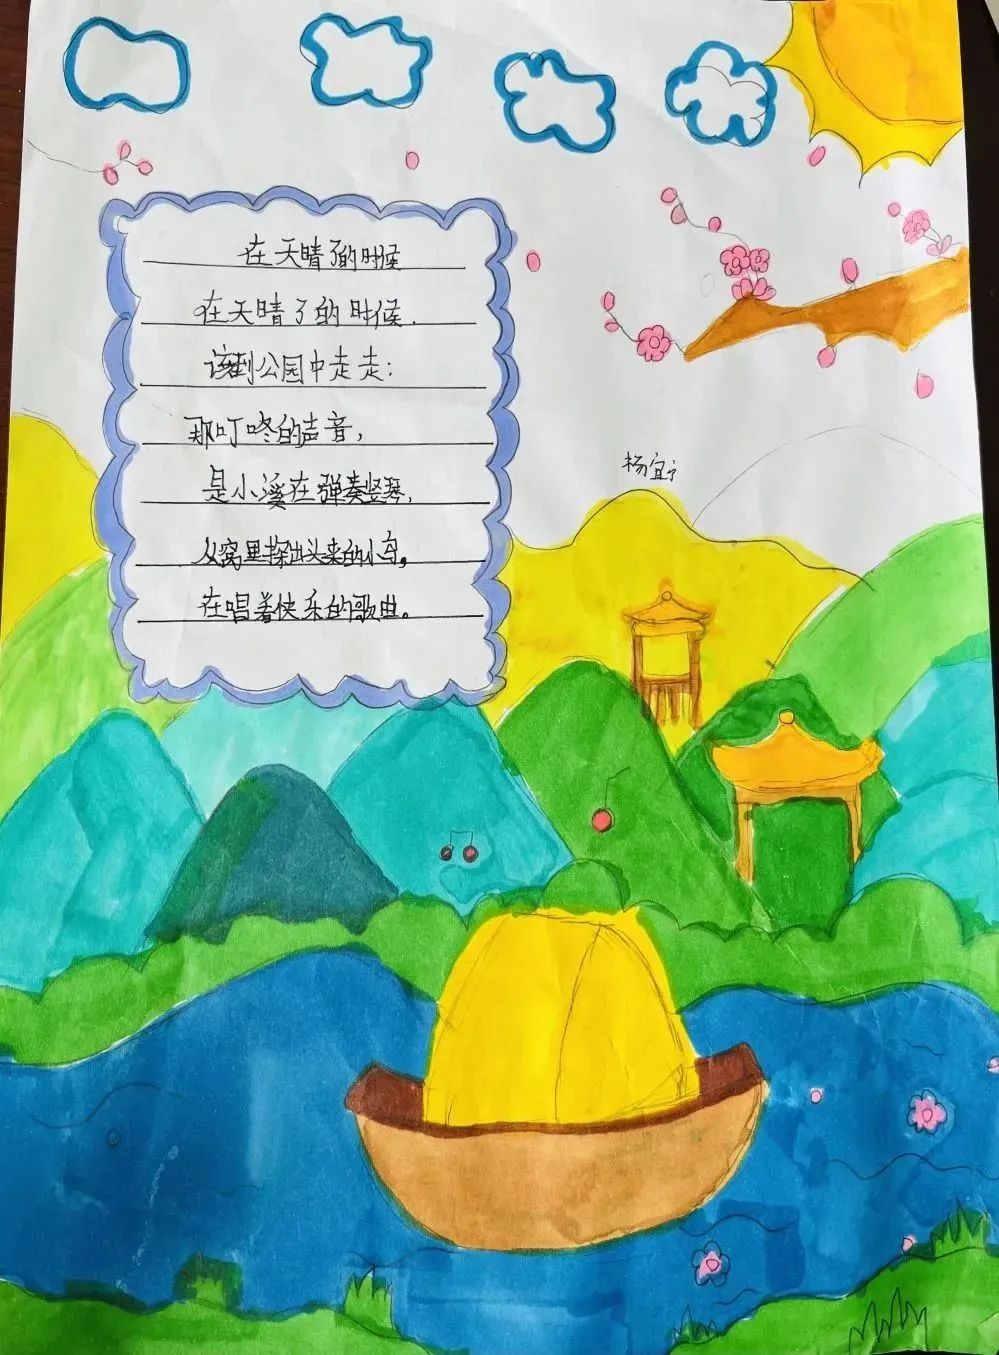 在天晴了的时候
在天晴了的时候.
该到公园中走走:
那叮咚的声音,
是小溪在弹奏竖琴,
从窝里探出头来的小鸟。
在唱着快乐的歌曲。
杨宜宁